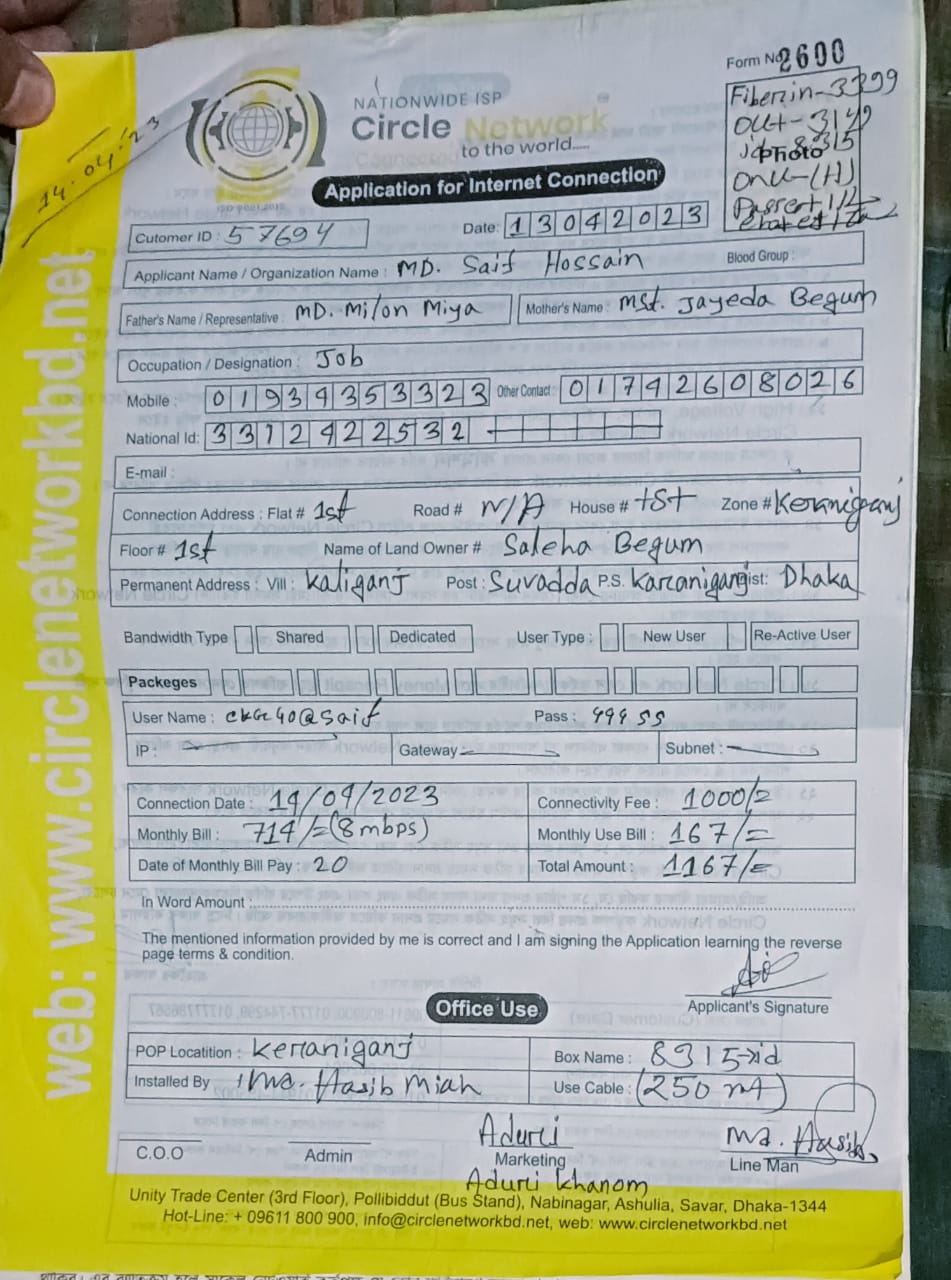 Form No 2600
NATIONWIDE ISP
Circle Network
to the world.....
Application for Internet Connection
14.04.23
Fiber in-3399
Out-3149
Photo
Onu-(H)
Cutomer ID : 57694
Date: 13042023
Applicant Name / Organization Name : MD. Saif Hossain Blood Group :
Father's Name / Representative : MD. Milon Miya Mother's Name : Mst. Jayeda Begum
Occupation / Designation : Job
Mobile : 01934353323 Other Contact : 01742608026
National Id: 3312422532
E-mail :
Connection Address : Flat # 1st Road # N/A House # tSt Zone # Keraniganj
Floor # 1st Name of Land Owner # Saleha Begum
Permanent Address : Vill : Kaliganj Post : Suvadda P.S. Karanigang ist: Dhaka
Bandwidth Type Shared Dedicated User Type : New User Re-Active User
Packeges
User Name : ckgc40@saif Pass : 999 55
IP : Gateway Subnet :
Connection Date : 14/04/2023 Connectivity Fee : 1000/=
Monthly Bill : 714/=(8mbps) Monthly Use Bill : 167/=
Date of Monthly Bill Pay : 20 Total Amount : 1167/=
In Word Amount :
The mentioned information provided by me is correct and I am signing the Application learning the reverse
page terms & condition.
Applicant's Signature
Office Use
POP Locatition : Kerraniganj Box Name : 8315
Installed By Md. Hasib Miah Use Cable : (250 m)
Aduri Md. Hasib
C.O.O Admin Marketing Line Man
Aduri Khanom
Unity Trade Center (3rd Floor), Pollibiddut (Bus Stand), Nabinagar, Ashulia, Savar, Dhaka-1344
Hot-Line: + 09611 800 900, info@circlenetworkbd.net, web: www.circlenetworkbd.net
web: www.circlenetworkbd.net